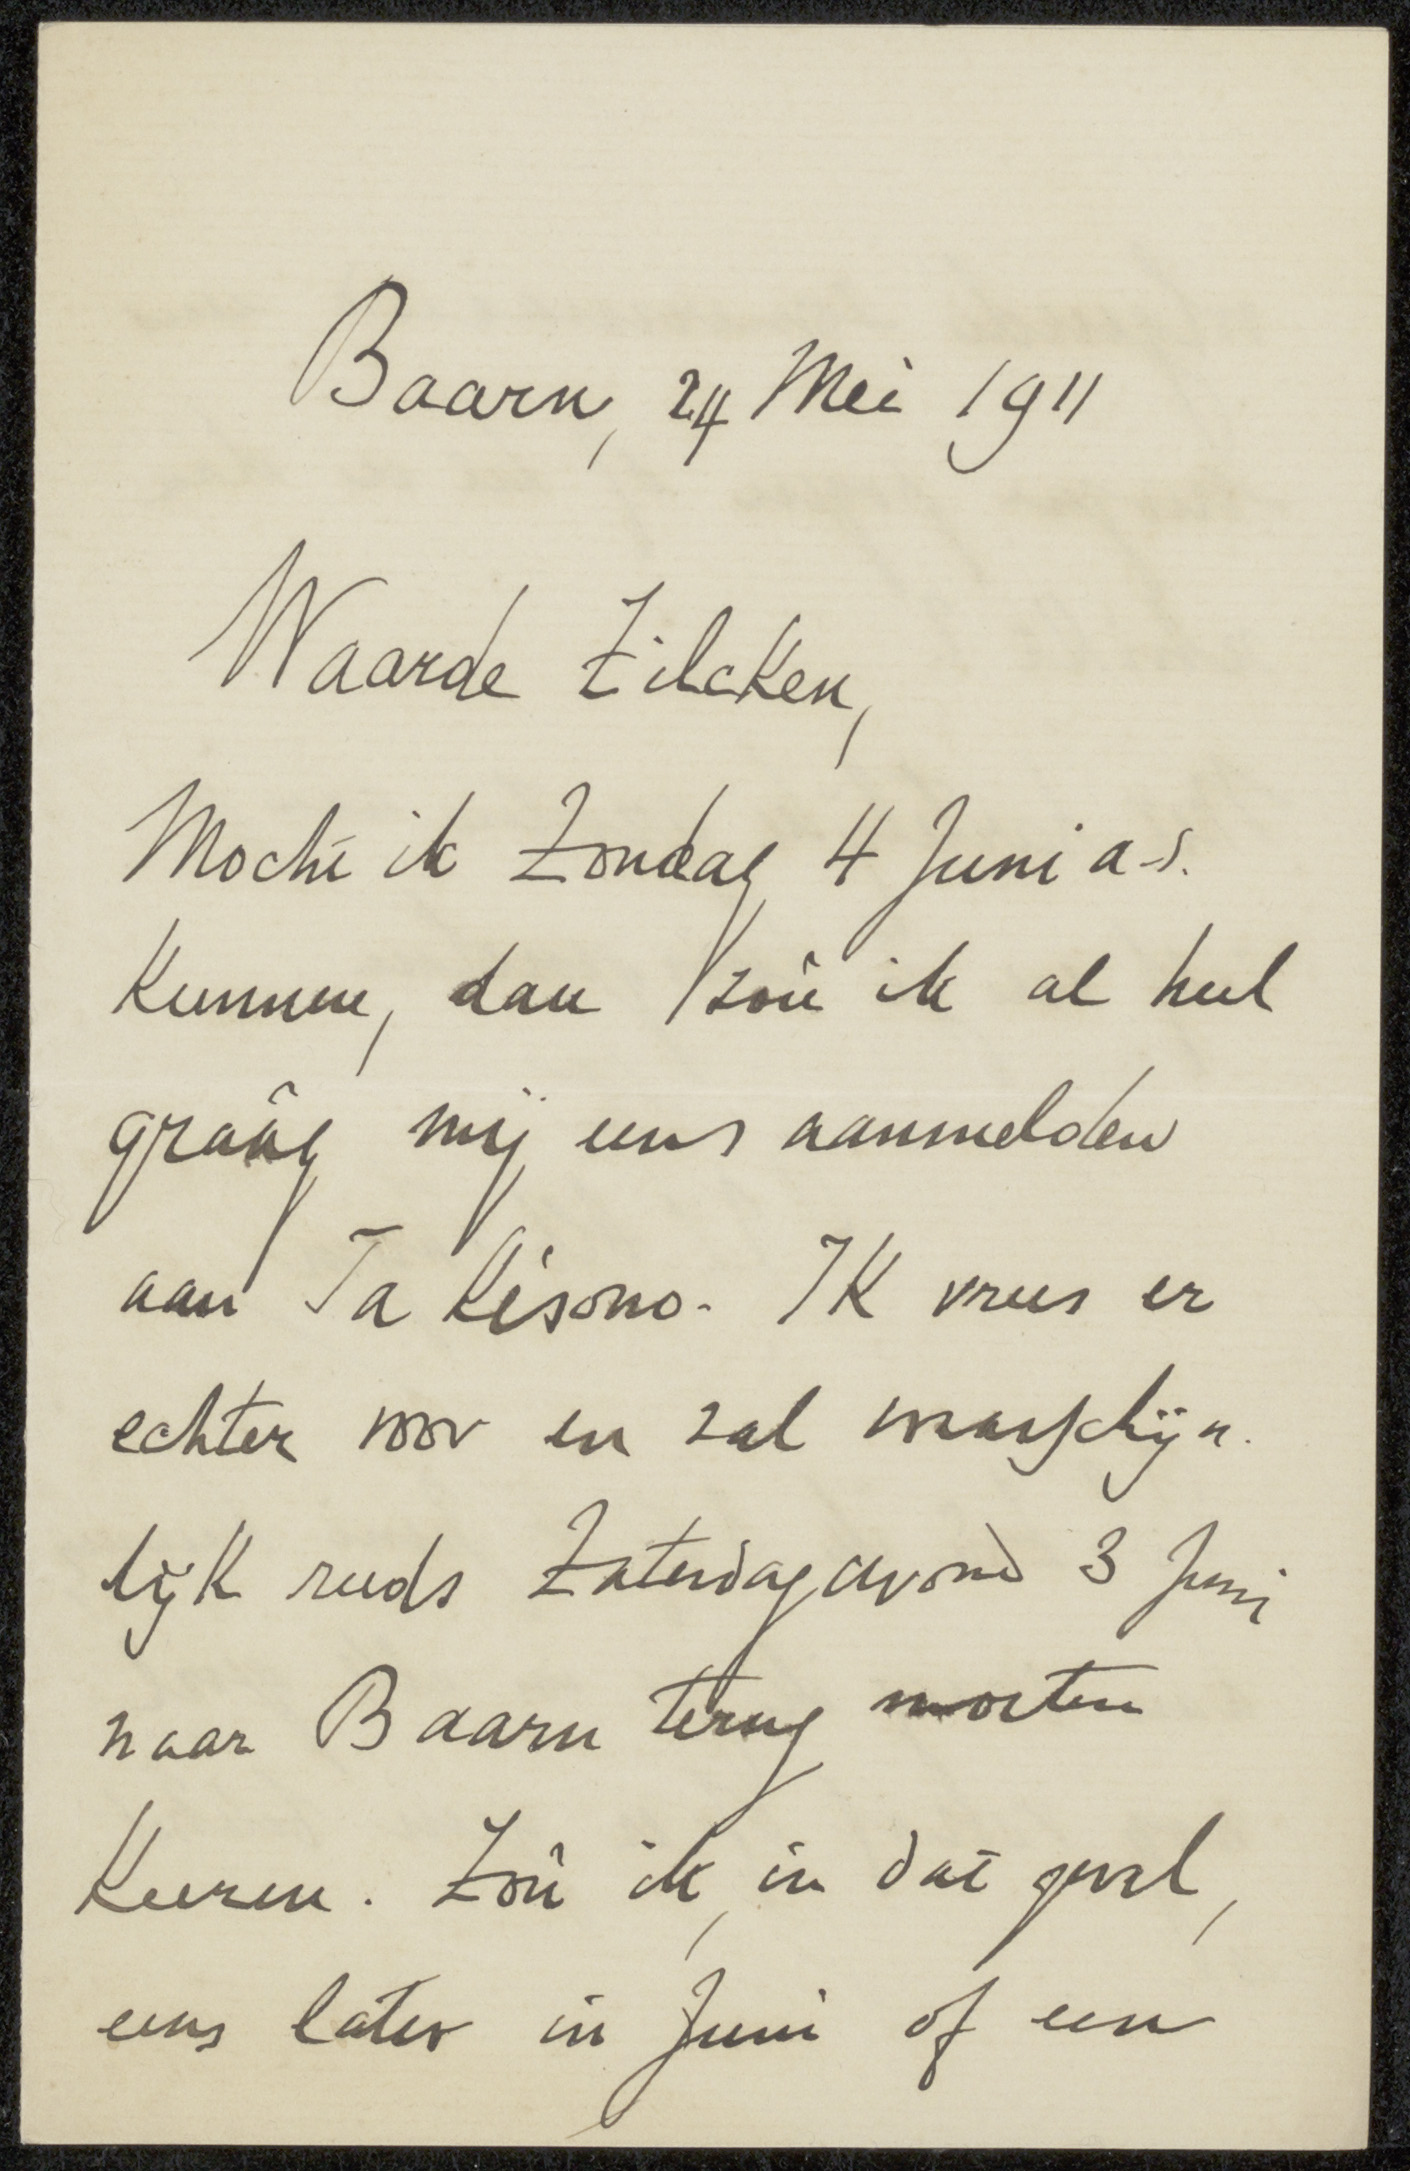 Baarn, 24 Mei 1911
Waarde Zilcken,
Mocht ik Zondag 4 Juni a.s.
kunnen, dan zoû ik al heel
graâg mij eens aanmelden
aan Ta Kísono. Ik vrees er
echter voor en zal waarschijn-
lijk reeds Zaterdagavond 3 Juni
naar Baarn terug moeten
keeren. Zoû ik, in dat geval,
eens later in Juni of een